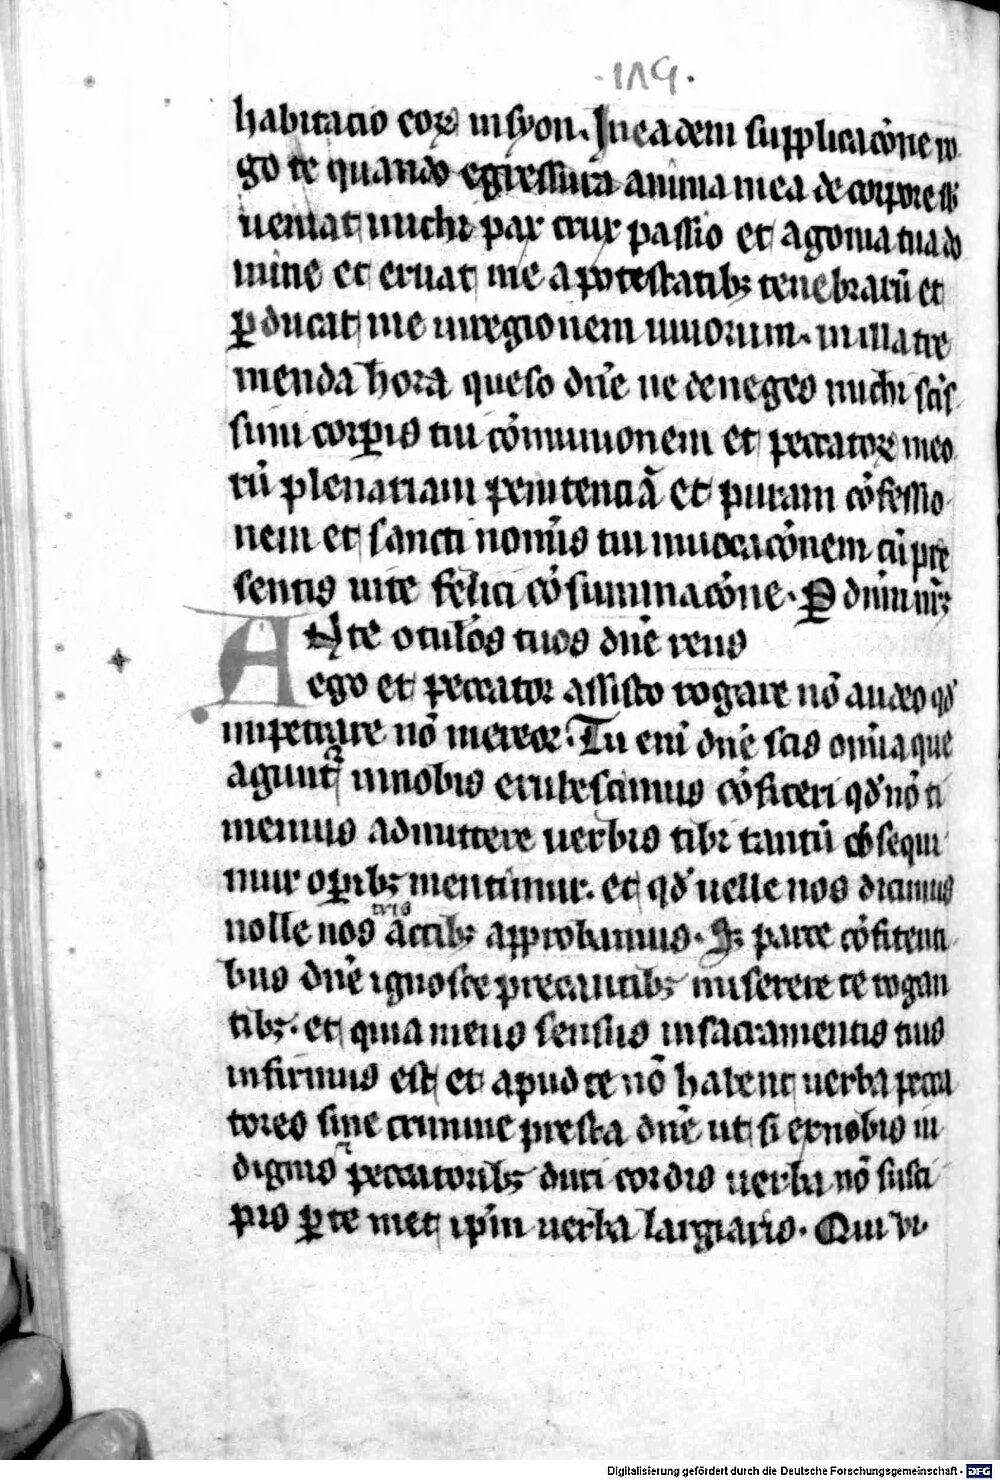 ·119·
habitacio eorꝝ in syon. In eadem supplicacōne ro
go te quando egressura anima mea de corpore sb
ueniat michi pax crux passio et agonia tua do
mine et eruat me a potestatibꝫ tenebrarū et
ꝑducat me in regionem uiuorum. in illa tre
menda hora queso dn̄e ne deneges michi scīs
simi corꝑis tui cōmunionem et peccatorꝝ meo
rū plenariam penitenciā et puram cōfessio
nem et sancti nomīs tui inuocacōnem cū pre
sentis uite felici cōsummacōne. P dnm nrꝫ
Ante oculos tuos dn̄e reus
ego et peccator assisto rogare nō audeo qd̄
impetrare nō mereor. Tu enī dn̄e scis om̄ia que
agunt᷑ in nobis erubescimus cōfiteri qd̄ nō ti
memus admittere uerbis tibi tantū cōsequi
mur oꝑibꝫ mentimur. et qd̄ uelle nos dicimus
nolle nos nr̄is actibꝫ approbamus. parce cōfitenti
bus dn̄e ignosce precantibꝫ miserere te rogan
tibꝫ. et quia meus sensus in sacramentis tuis
infirmus est et apud te nō habent uerba pecca
tores sine crimine presta dn̄e ut si ex nobis in
dignis peccatoribꝫ duri cordis uerba nō susci
pis ꝑ te met ip̄m uerba largiaris. Qui vi
Digitalisierung gefördert durch die Deutsche Forschungsgemeinschaft - DFG